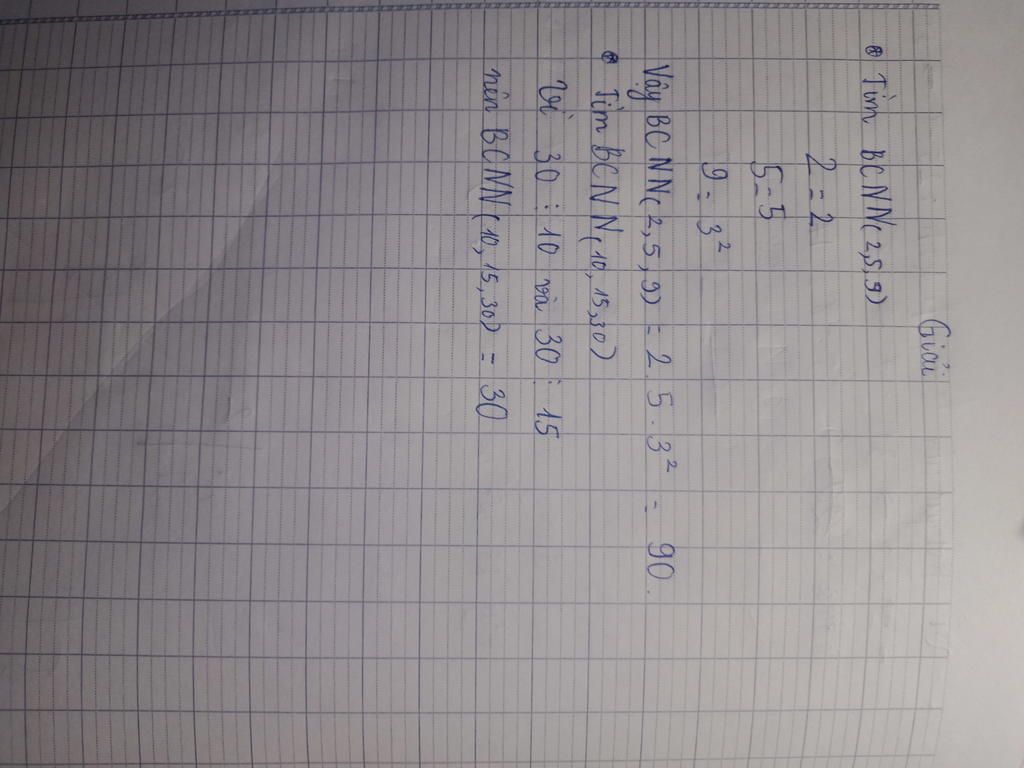 Giải
⊛ Tìm BCNN(2,5,9)
2 = 2
5 = 5
9 = 3²
Vậy BCNN(2,5,9) = 2.5.3² = 90.
⊛ Tìm BCNN(10,15,30)
Vì 30 ⋮ 10 và 30 ⋮ 15
nên BCNN(10,15,30) = 30